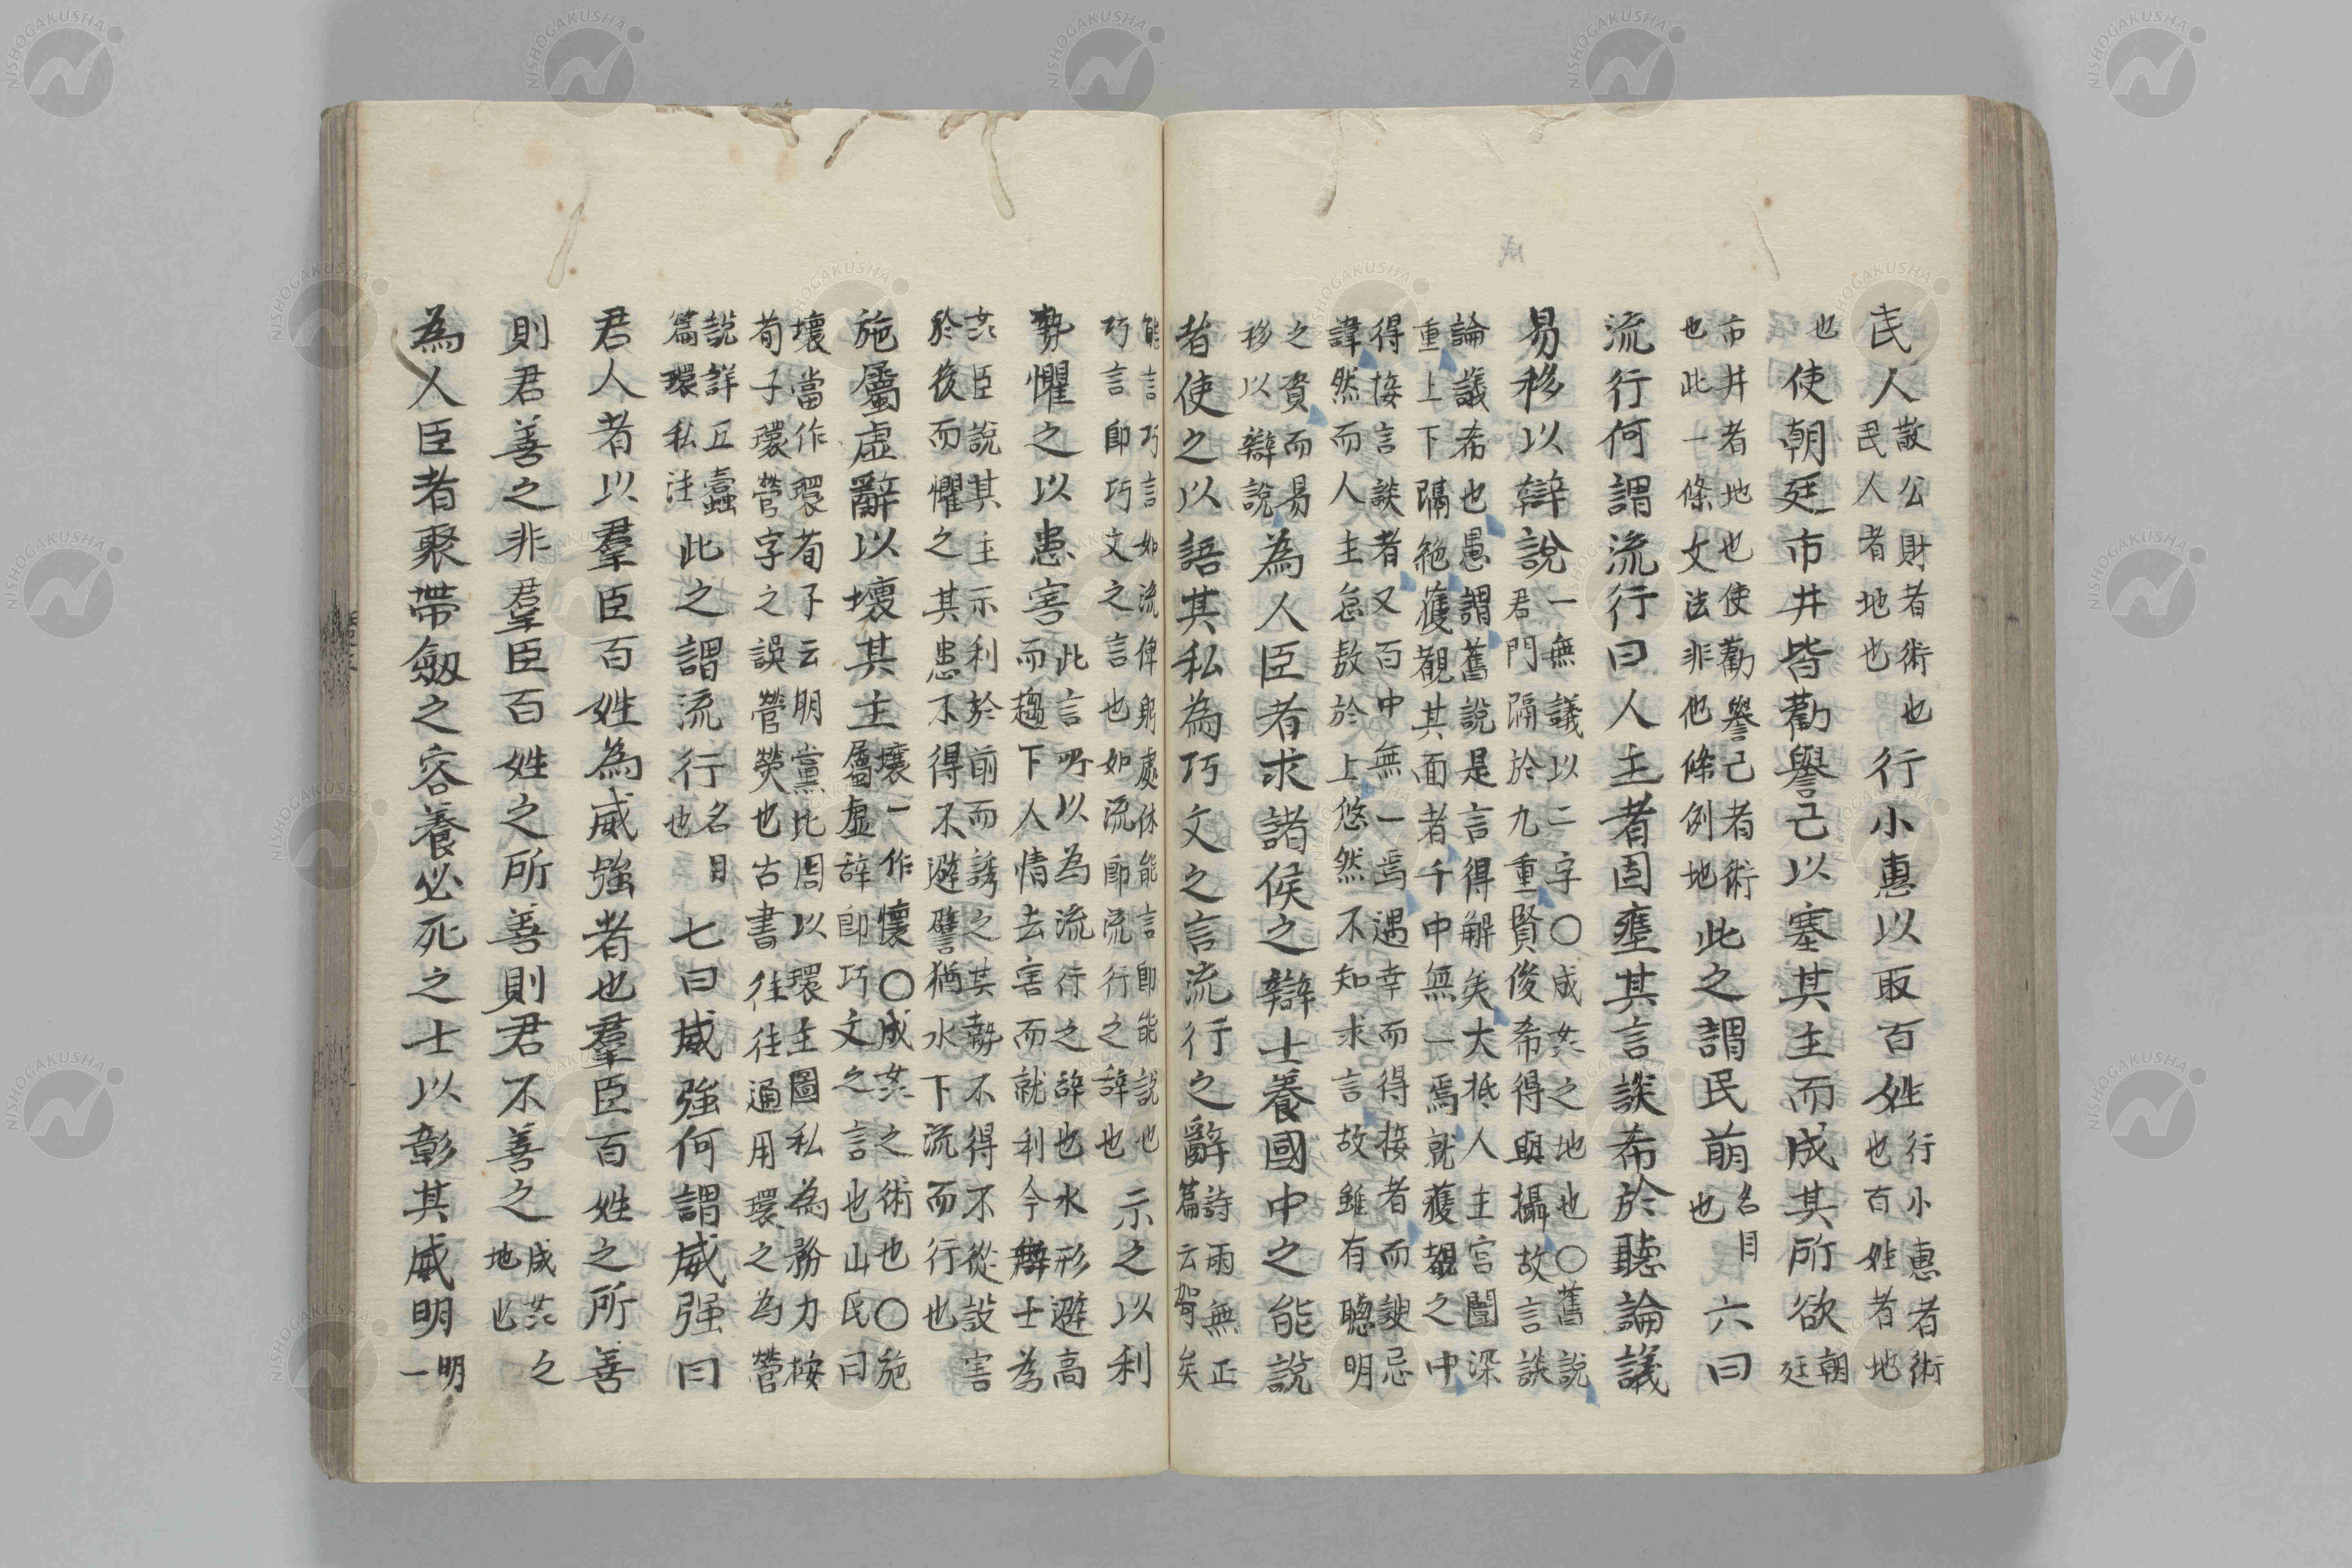 民人散公財者術也民人者地也行小惠以取百姓行小惠者術也百姓者地
也使朝廷市井皆勸譽己以塞其主而成其所欲朝廷
市井者地也使勸譽己者術也此一條文法非他條例地此之謂民萌名目也六曰
流行何謂流行曰人主者固壅其言談希於聽論議
易移以辯說一無議以二字〇成姧之地也〇舊說君門隔於九重賢俊希得與攝故言談
論議希也愚謂舊說是言得解矣大抵人主宮闈深重上下隔絶獲觀其面者千中無一焉就獲覩之中
得接言談者又百中無一焉遇幸而得接者而諛忌諱然而人主怠敖於上悠然不知求言故雖有聰明
之資而易移以辯說為人臣者求諸侯之辯士養國中之能說
者使之以語其私為巧文之言流行之辭詩雨無正篇云哿矣
能言巧言如流俾躬處休能言卽能說也巧言卽巧文之言也如流卽流行之辞也示之以利
勢懼之以患害此言所以為流行之辞也水形避高而趨下人情去害而就利今辯士為
姧臣說其主示利於前而誘之其勢不得不從設害於後而懼之其患不得不避譬猶水下流而行也
施屬虛辭以壞其主壞一作懷〇成姧之術也〇施屬虛辞卽巧文之言也山氏曰
壞當作環荀子云朋黨比周以環主圖私為務力按荀子環營字之誤營熒也古書往往通用環之為營
說詳五蠹篇環私注此之謂流行名目也七曰威強何謂威强曰
君人者以羣臣百姓為威強者也羣臣百姓之所善
則君善之非羣臣百姓之所善則君不善之成姧之地也
為人臣者聚帶劔之客養必死之士以彰其威明明一